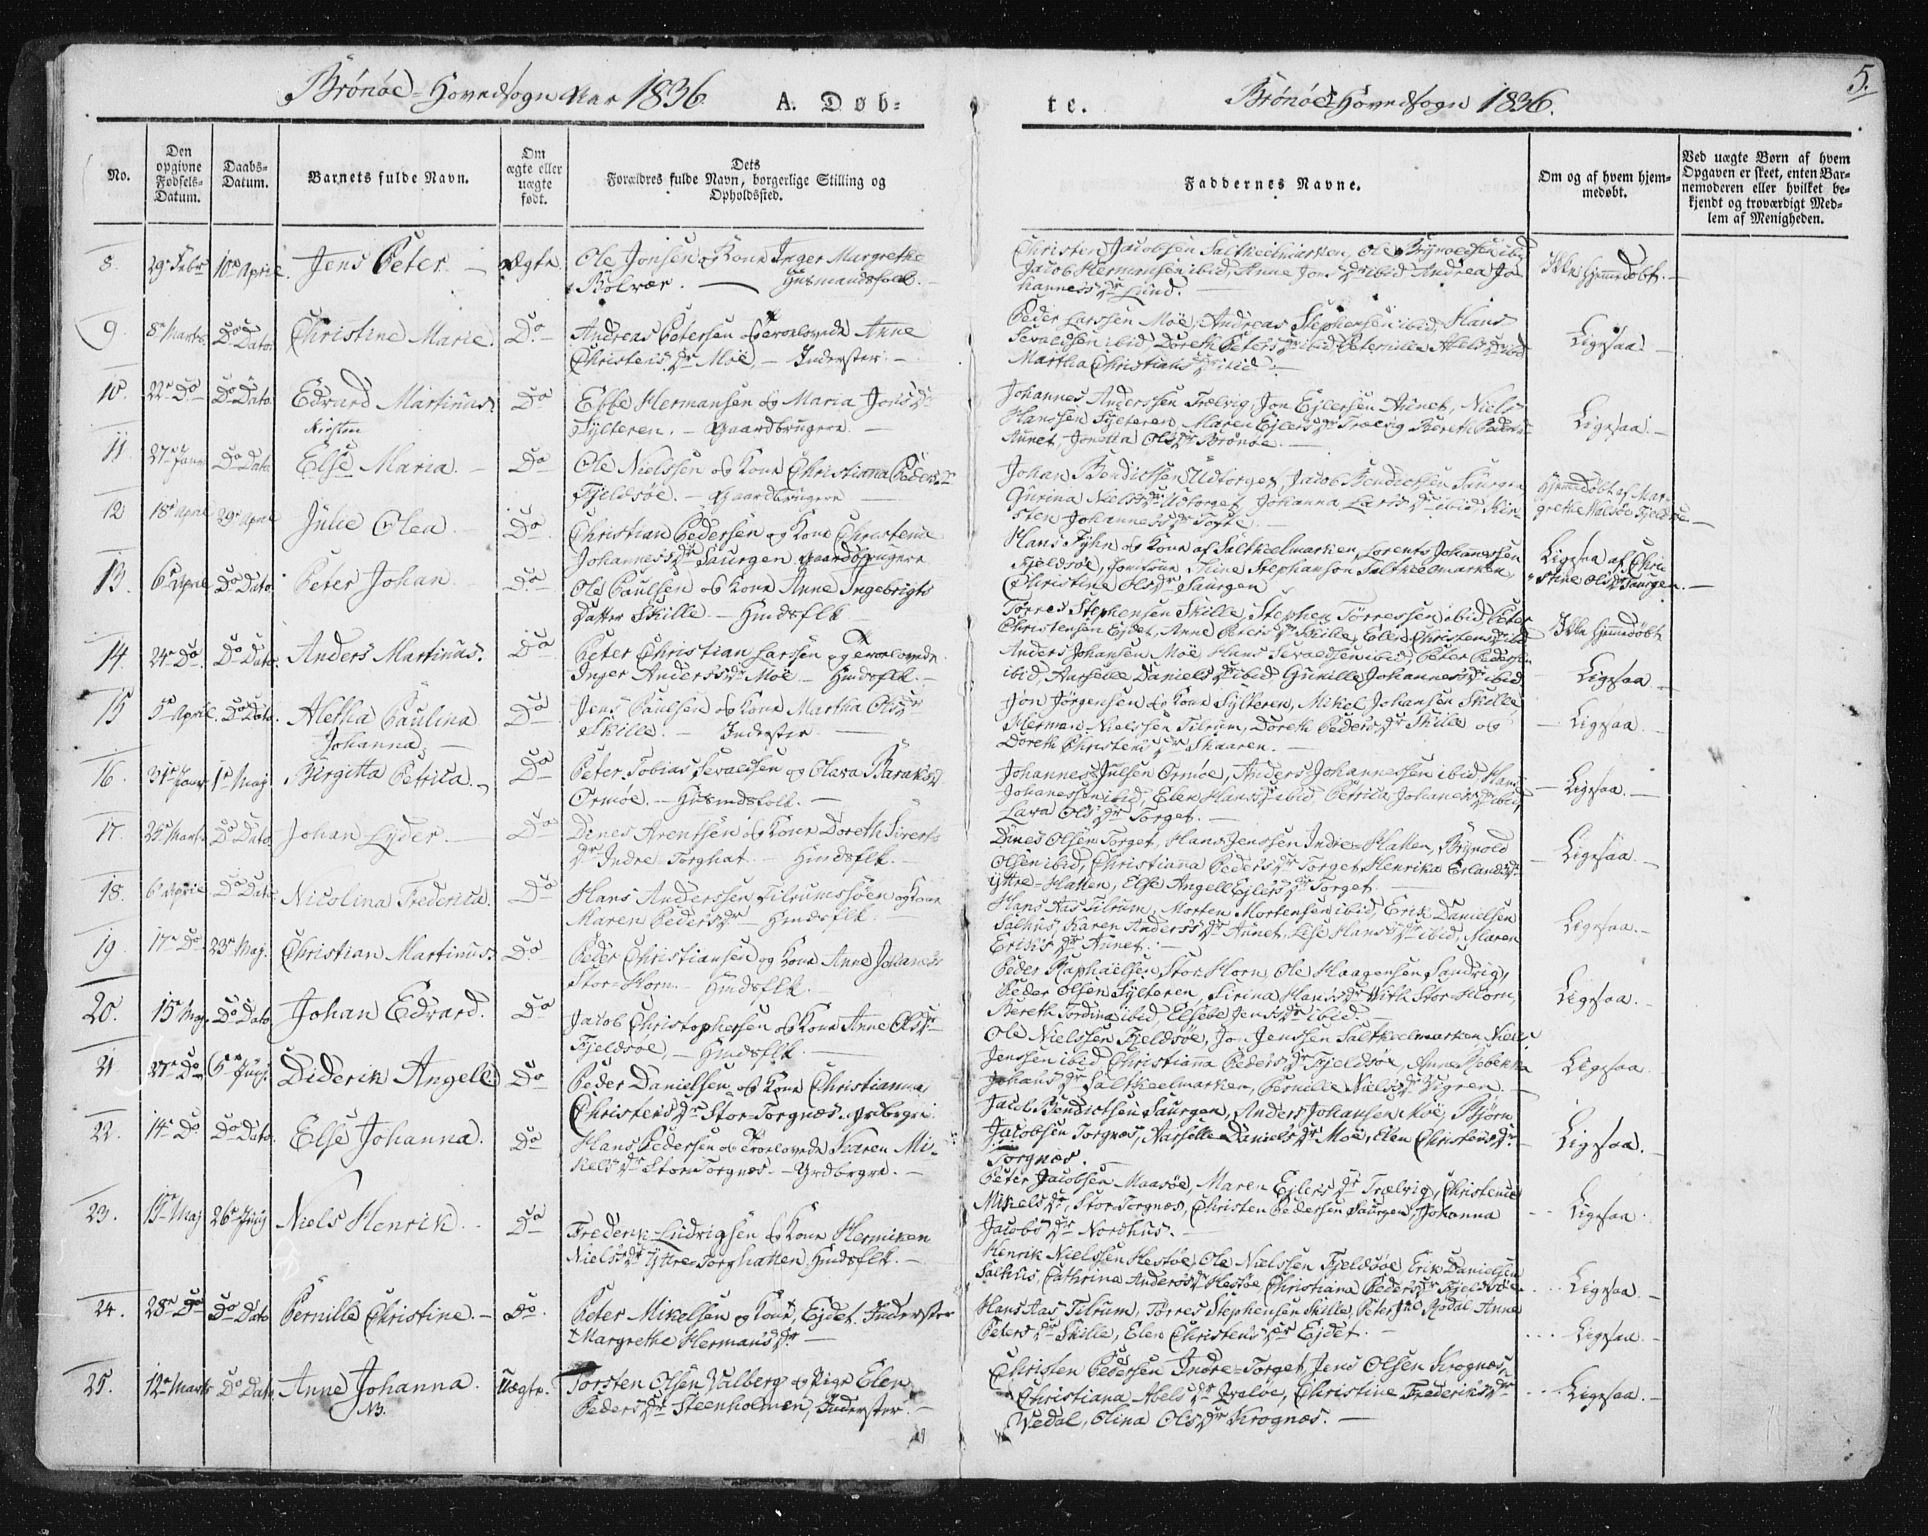 Brönöe Hovedsogn Aar 1836. A. Døb-
te. Brönöe Hovedsogn 1836.
5.
No.
Den opgivne Fødsels-Datum.
Daabs-Datum.
Barnets fulde Navn.
Om ægte eller uægte født.
Dets Forældres fulde Navn, borgerlige Stilling og Opholdssted.
Faddernes Navne.
Om og af hvem hjemmedøbt.
Ved uægte Børn af hvem Opgaven er skeet, enten Barnemoderen eller hvilket bekjendt og troværdigt Medlem af Menigheden.
8. 29 Febr 10de April. Jens Peter. — Ægte Ole Jonsen og Kone Inger Margrethe
Bolvær. — Huusmandsfolk. —
Christen Jacobsen Saltkeelmarken, Ole Brynoldsen ibid
Jacob Hermansen ibid, Anne Jons Dr ibid Andrea Jo-
hanness Dr Lund. —
Ikke hjemedøbt. —
9 8de Marts Do Dato. Christine Marie. Do — Andreas Petersen og trolovede Anne
Christens Dr Moe — Inderster. —
Peder Larssen Moe, Andreas Stephensen ibid, Hans
Sevaldsen ibid Doreth Peters Dr ibid Peternille Abels Dr ibid
Martha Christians Dr ibid. —
Ligesaa. —
10. 22de Do Do Dato. Edvard Martinus. Do Ebbe Hermansen og Maria Jons Dr
Tylteren. — Gaardbrugere. —
Johannes Anderssen Trælvig, Jon Ejlersen Aunet, Niels
Hanssen Sylteren, Maren Ejlers Dr Trælvig Bereth Peders
Aunet, Jonetta Ols Dr Brönöe. —
Ligesaa. —
11 27de Janu Do Dato Kirsten
Else Maria. — Do Ole Nielssen og Kone Christiana Peders Dr
Fjeldsöe. — Gaardbrugere —
Johan Bendictsen Udtorget, Jacob Bendictsen Saurgen
Gurina Niels Dr Udtorget, Johanna Lars Dr ibid, Kir-
sten Johanness Dr Tofte. —
Hjemedøbt af Mar-
grethe Fjeldsöe. —
12 18de April 29de April Julie Olea — Do Christian Pedersen og Kone Christence
Johanness Dr Saurgen Gaardbrugere
Hans Fyhn og Kone af Saltkeelmarken, Lorents Johannessen
Fjeldsöe, Stephanson Saltkeelmarken,
Christine Ols Dr Saurgen
Ligesaa af Chri
stine Ols Dr Saurgen. —
13. 6de April Do Dato. Peter Johan. Do Ole Paulsen og Kone Anne Ingebrigts
Datter Skille — Hmdsflk —
Torres Stephensen Skille, Stephen Torressen ibid, Peter
Christensen Ejdet, Anne Peters Dr Skille, Elen Christens Dr ibid
Ikke hjemedøbt
14. 24de Do. Do Dato. Anders Martinus. Do Peter Christian Larssen og trolovede
Inger Anderss Dr Moe — Hmdsflk. —
Anders Johansen Moe Hans Sevaldsen ibid, Peter Pedersen
ibid, Daniels Dr ibid Gunille Johanness Dr ibid
Ligesaa —
15 5de April. Do Dato. Aletha Paulina
Johanna. — Do Jens Paulsen og Kone Martha Ols Dr
Skille. — Inderster —
Jon Jörgensen og Kone Sylteren, Mikel Johansen Skille
Herman Nielssen Tilrum, Doreth Peders Dr Skille og
Doreth Christens Dr Skaaren. —
Ligesaa. —
16 31te Janr 1te Maj Birgitta Petrica. Do Peter Tobias Sevaldsen og Olava Baraks Dr
Ormöe. — Husmdsfolk. —
Johannes Julsen Ormöe, Anders Johannessen ibid Hans
Johanessen ibid, Elen Hans Dr ibid, Petrica Johaness Dr ibid
Lava Ols Dr Torget. —
Ligesaa. —
17. 25de Marts Do Dato. Johan Lyder. — Do Dines Arentsen og Kone Doreth Siverts
Dr Indre-Torghat. — Hmdsflk. —
Dines Olsen Torget, Hans Jenssen Indre-Hatten, Brynold
Olsen ibid, Christiana Peders Dr Torget, Henrika Erlands Dr
Yttre-Hatten, Else Angell Ejlers Dr Torget. —
Ligesaa. —
18. 6te April Do Dato. Nicolina Frederica. Do Hans Anderssen Tilrumssöen og Kone
Maren Peders Dr — Hmdsflk. —
Hans Aas Tilrum, Morten Mortensen ibid, Erik Danielsen
Salhus, Karen Anderss Dr Aunet, Lise Hans Dr ibid, Maren
Eriks Dr Aunet. —
Ligesaa. —
19. 17de Do 23de Maj. Christian Martinus Do Peder Christiansen og Kone Anne Johaness
Stor-Horn. — Hmdsflk. —
Peder Raphaëlsen, Stor Horn, Ole Haagensen Sandvig,
Peder Olsen Sylteren, Sirina Hans Dr With Stor-Horn,
Bereth Tordina ibid, Elsebe Jens Dr ibid. —
Ligesaa. —
20. 15de Maj. Do Dato Johan Edvard. Do Jacob Christophersen og Kone Anne Ols Dr
Fjeldsöe, — Hmdsflk. —
Ole Nielssen Fjeldsöe, Jon Jenssen Saltkeelmarken Niels
Jenssen ibid Christianna Peders Dr Fjeldsöe, Anne Rebekka
Johans Dr Saltkeelmarken, Pernille Niels Dr Vigren. —
Ligesaa.
21 27de Do. 5te Junj. Diderik Angell. Do Peder Danielsen og Kone Christianna
Christens Dr Stor-Torgnæs. Grdbrgre.
Jacob Bendictsen Saurgen, Anders Johansen Moe, Björn
Jacobsen Torgnæs, Daniels Dr Moe, Elen Christens Dr
Torgnæs. —
Ligesaa. —
22. 14de Do Do Dato. Else Johanna. Do Hans Pedersen og trolovede Karen Mi-
kels Dr Stor-Torgnæs. — Grdbrgre. —
Peter Jacobsen Maasöe, Maren Ejlers Dr Trælvig, Christence
Mikels Dr Stor Torgnæs, Christen Pedersen Saurgen, Johanna
Jacobs Dr Nordhus. —
Ligesaa.
23. 15de Maj 26de Junj Niels Henrik. Do Frederik Ludvigsen og Kone Hermiken
Niels Dr Yttre Torghatten, Hmdsflk. —
Henrik Nielssen Hestöe, Ole Nielssen Fjeldsöe Erik Danielsen
Salhus, Cathrina Anderss Dr Hestöe Christiana Peders Dr Fjeldsöe
Ligesaa. —
24. 28de Do Do Dato Pernille Christine. — Do. Peter Mikelsen og Kone, Ejdet Inderster
Margrethe Hermans Dr —
Hans Aas Tilrum, Torres Stephensen Skille, Peter Rödal Anne
Peters Dr Skille, Elen Christens Dr Ejdet. —
Ligesaa —
25. 12te Marts Do Dato. Anne Johanna.
NB. Uægte. Torsten Olsen Valberg og Pige Elen
Peders Dr Steenholmen, Inderster. —
Christen Pedersen Indre-Torget, Jens Olsen Krognæs,
Christiana Abels Dr , Christine Frederiks Dr
Vedal, Olina Ols Dr Krognæs. —
Ligesaa. —